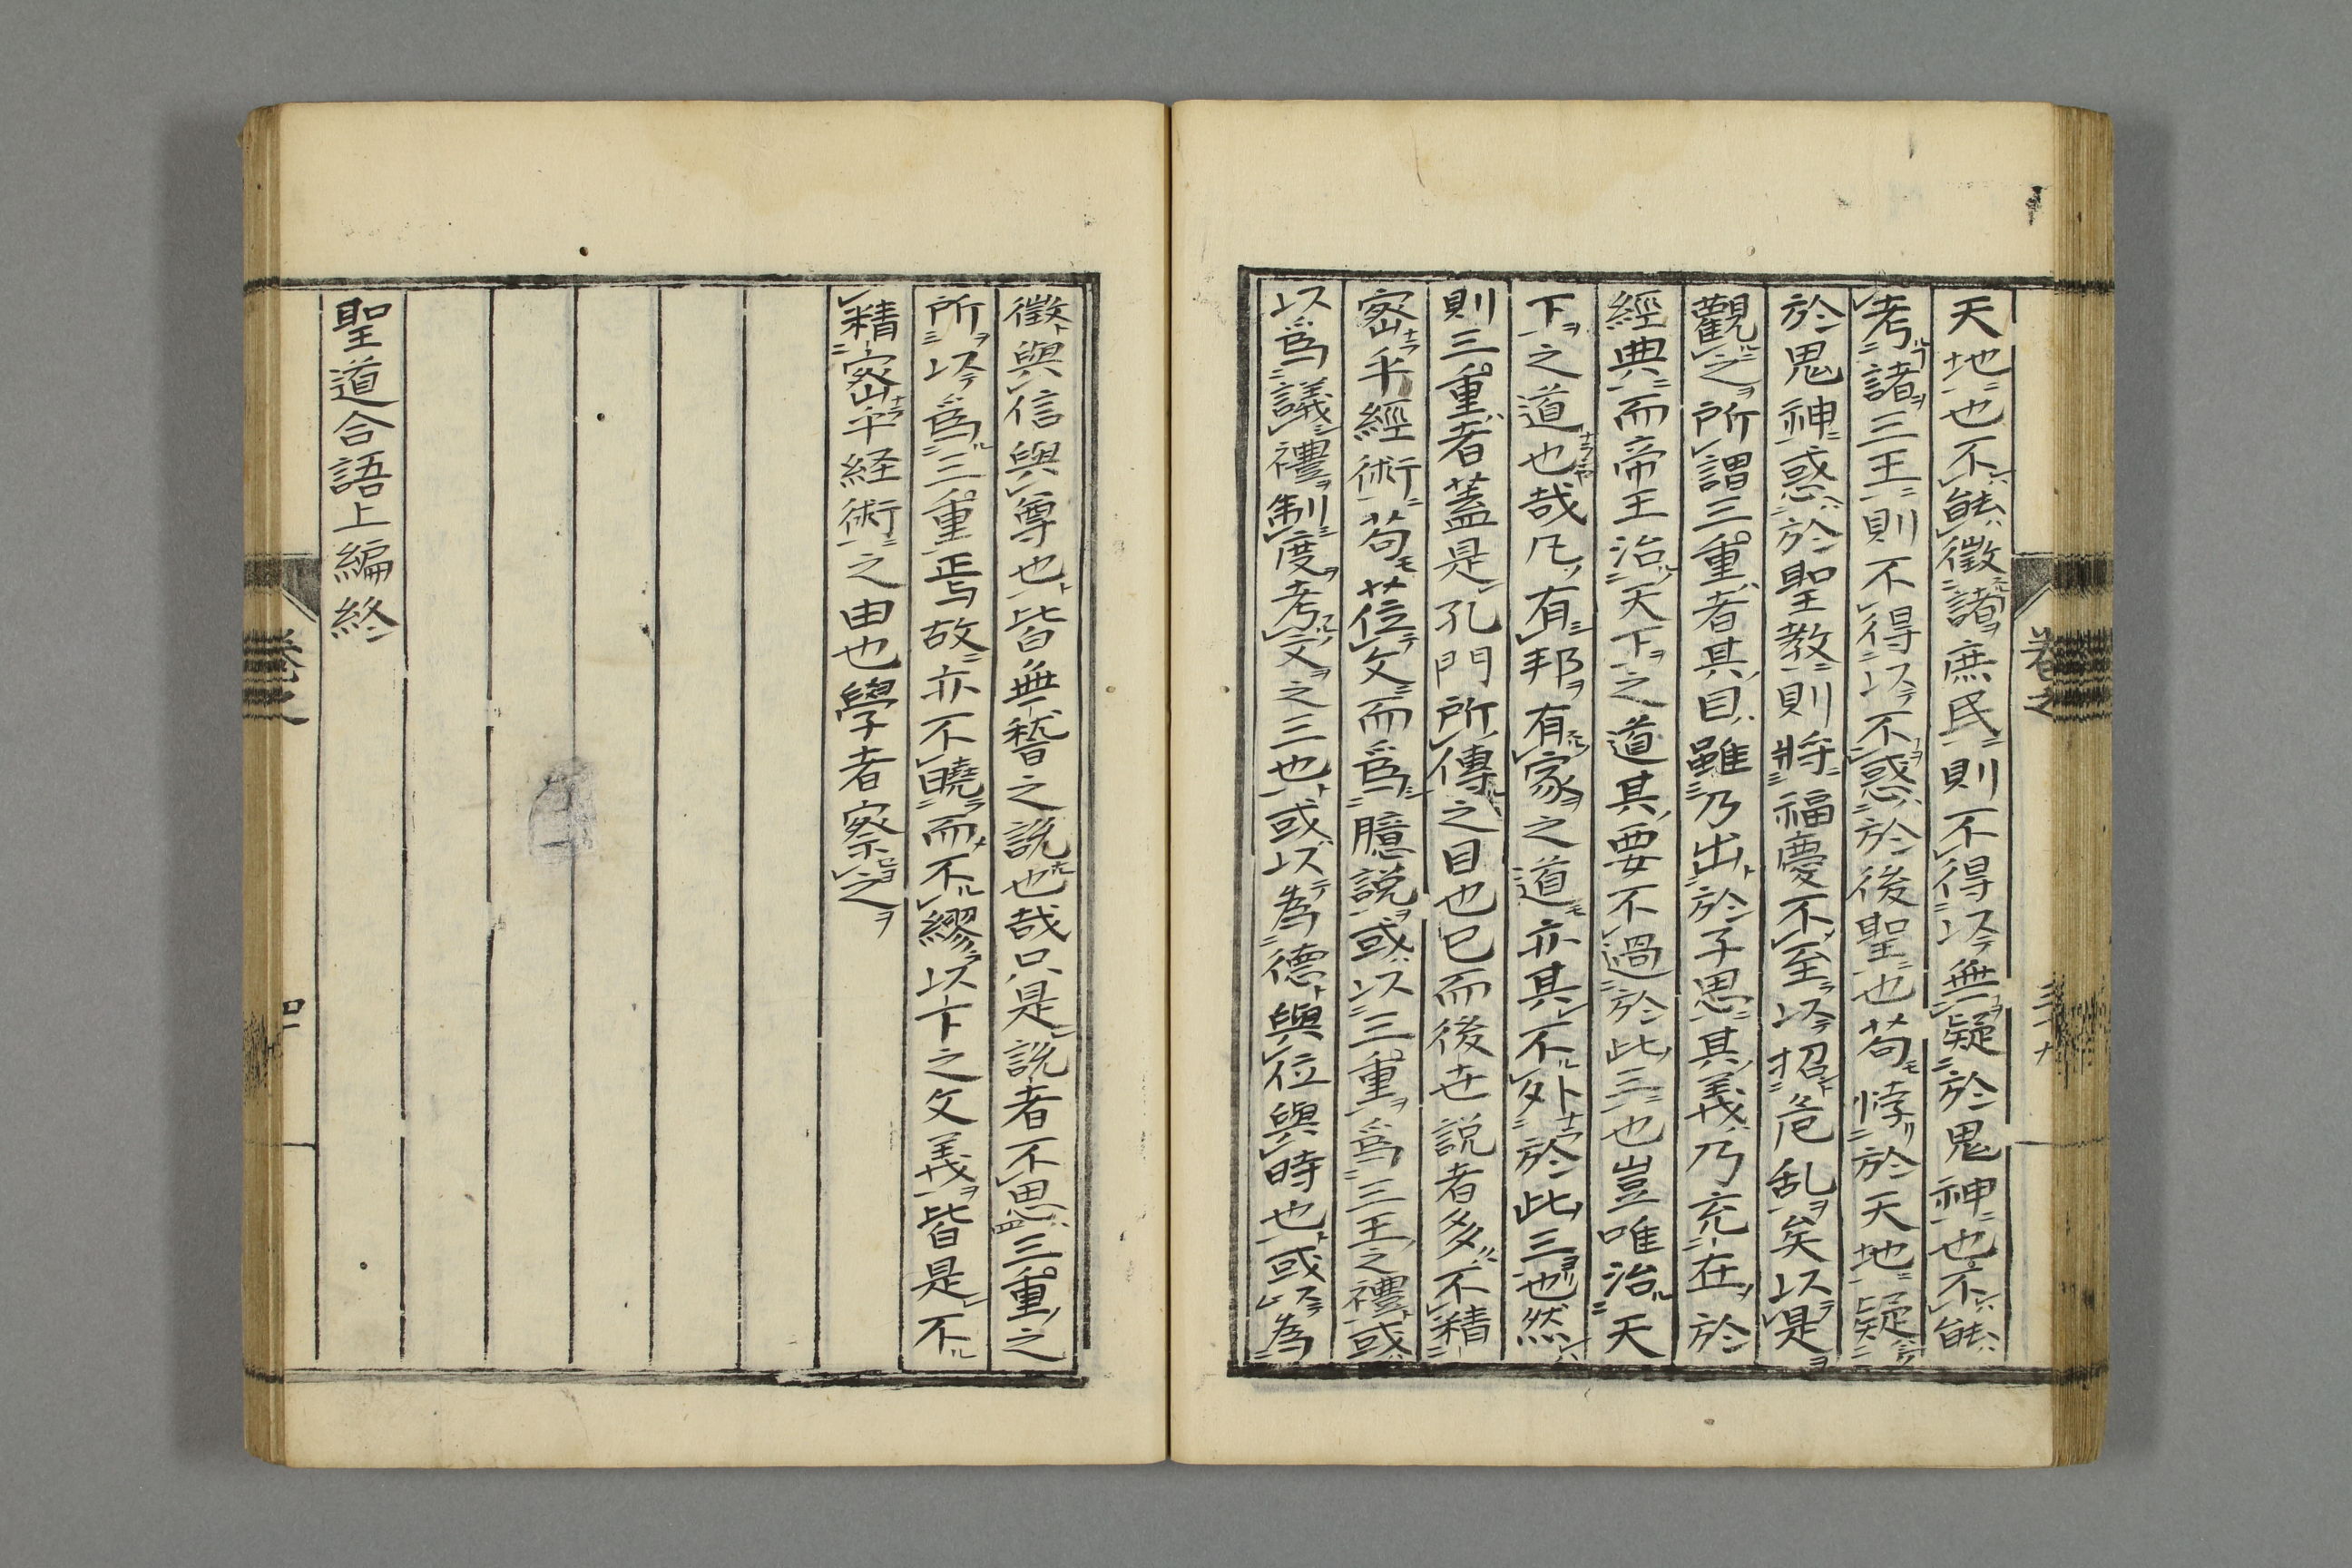 天地也不能徵諸庶民則不得以無疑於鬼神也不能
考諸三王則不得以不惑於後聖也苟悖於天地疑
於鬼神惑於聖教則將福慶不至以招危乱矣以是
觀之所謂三重者其目雖乃出於子思其義乃充在於
經典而帝王治天下之道其要不過於此三也豈唯治天
下之道也哉凡有邦有家之道亦其不外於此三也然
則三重者蓋是孔門所傳之目也已而後世說者多不精
密乎經術苟莅文而爲臆說或以三重爲三王之禮或
以爲議禮制度考文之三也或以為德與位與時也或以為
徵與信與尊也皆無稽之說也哉只是說者不思三重之
所以爲三重焉故亦不曉而不繆以下之文義皆是不
精密乎経術之由也學者察之
聖道合語上編終